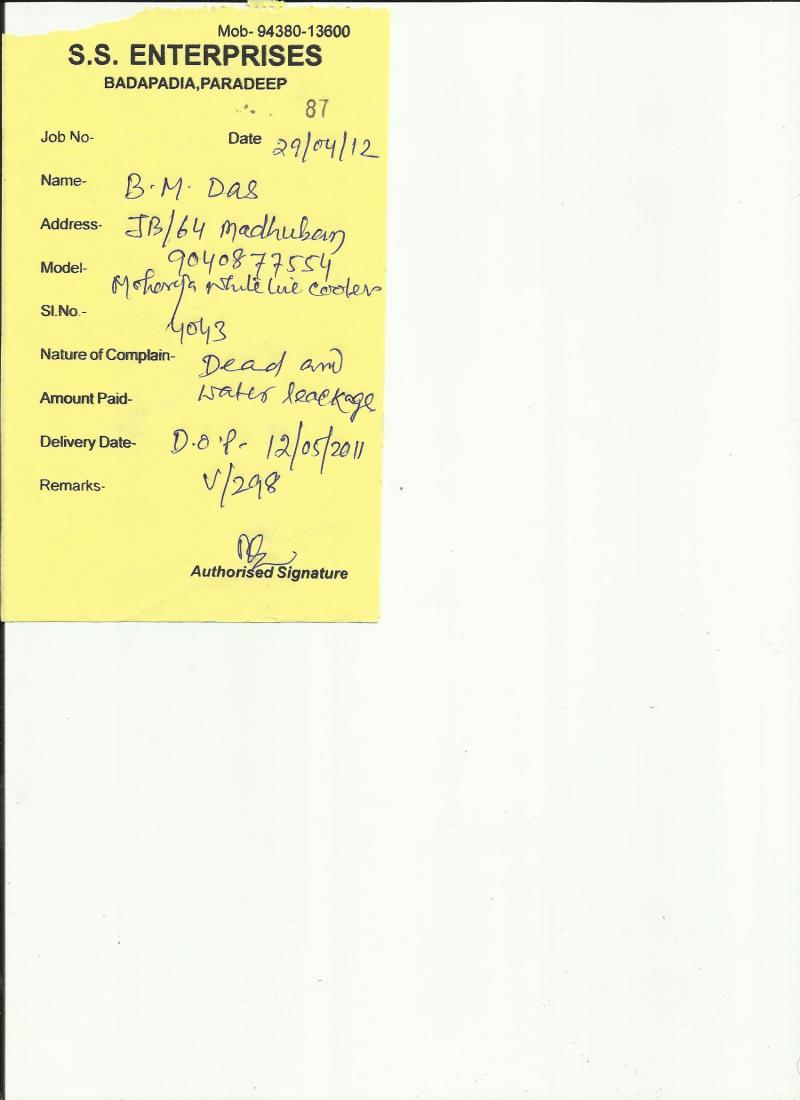 Mob- 94380-13600
S.S. ENTERPRISES
BADAPADIA,PARADEEP
87
Job No- Date 29/04/12
Name- B.M. DAS
Address- JB/64 Madhuban
9040877554
Model- Maharaja white line coolers
Sl.No.- 4043
Nature of Complain- Dead and
water leackage
Amount Paid-
Delivery Date- D.O.P- 12/05/2011
Remarks- V/298
Authorised Signature